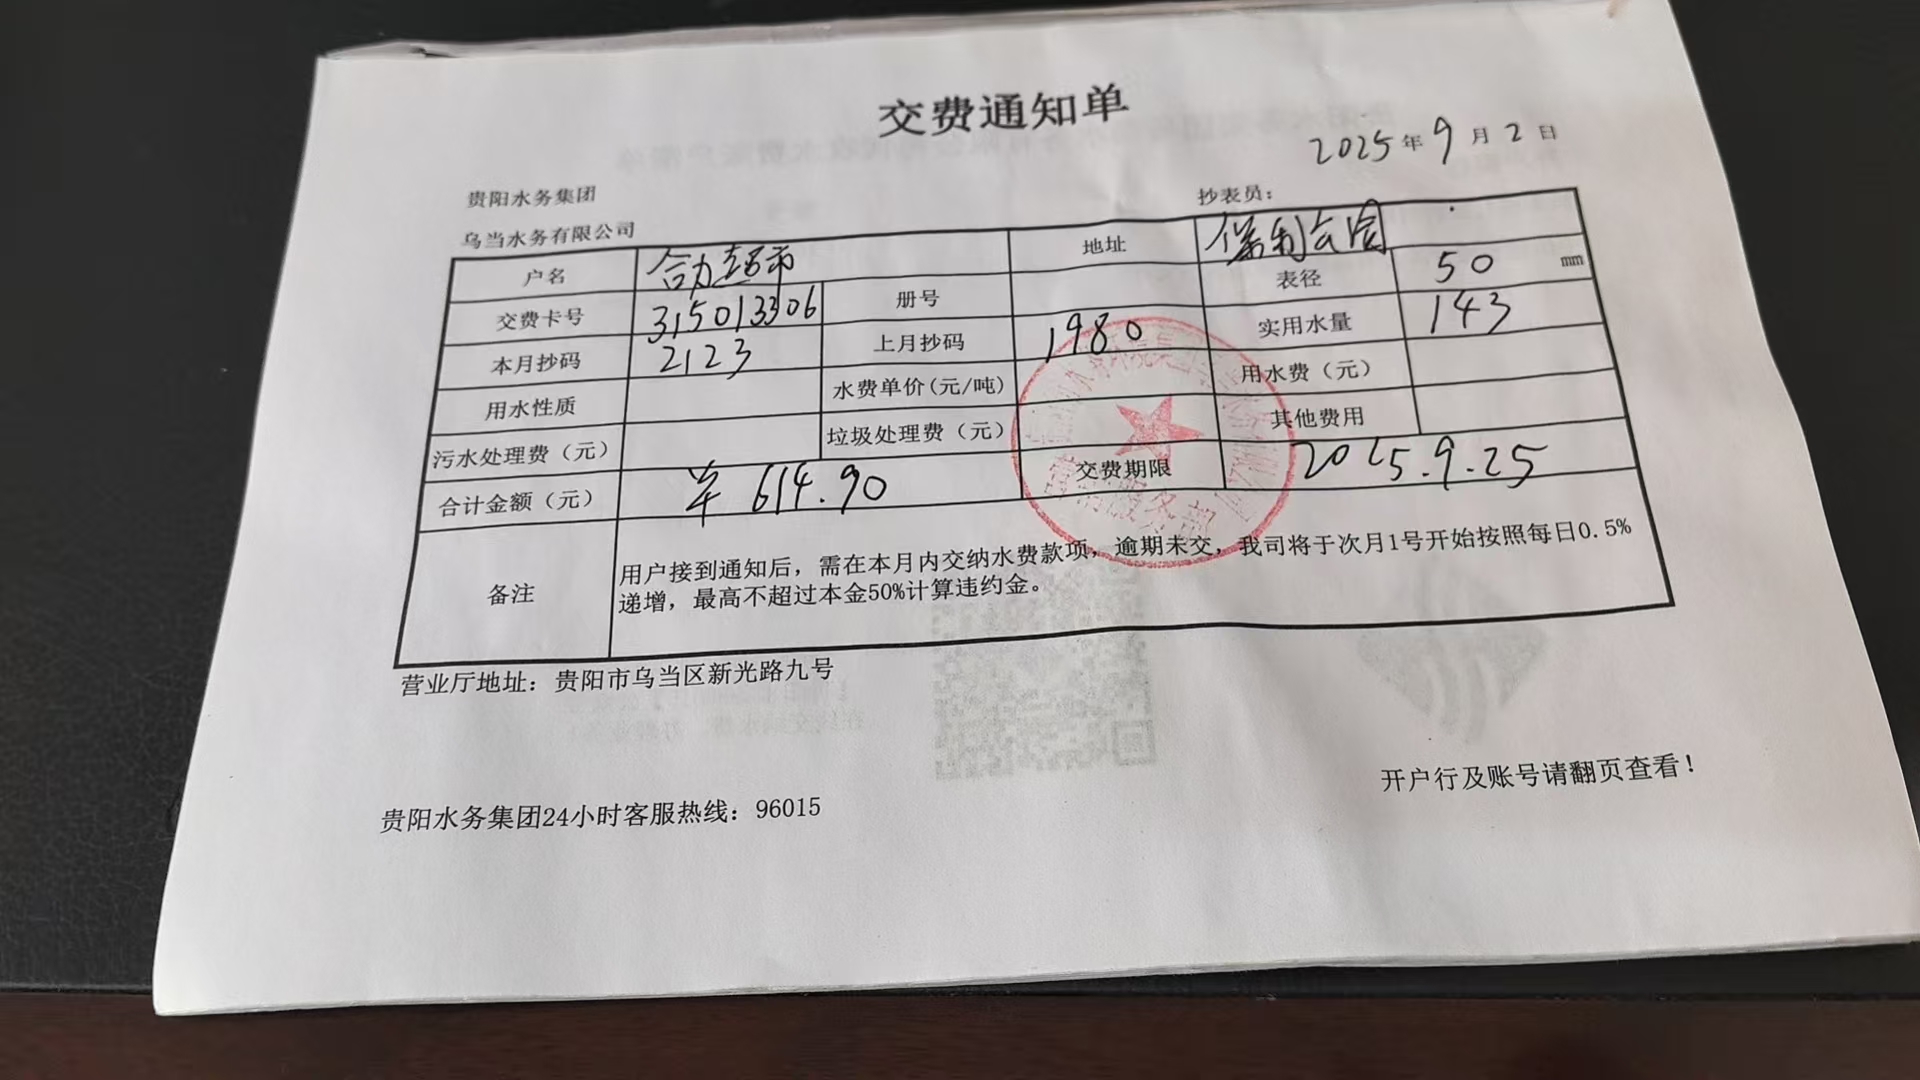 交费通知单
2025年9月2日
贵阳水务集团
抄表员：
乌当水务有限公司
户名 合力超市 地址 保利公园
交费卡号 315013306 册号 表径 50 mm
本月抄码 2123 上月抄码 1980 实用水量 143
用水性质 水费单价(元/吨) 用水费（元）
污水处理费（元） 垃圾处理费（元） 其他费用
合计金额（元） ¥ 614.90 交费期限 2025.9.25
营销服务部
备注 用户接到通知后，需在本月内交纳水费款项，逾期未交，我司将于次月1号开始按照每日0.5%
递增，最高不超过本金50%计算违约金。
营业厅地址：贵阳市乌当区新光路九号
开户行及账号请翻页查看！
贵阳水务集团24小时客服热线：96015